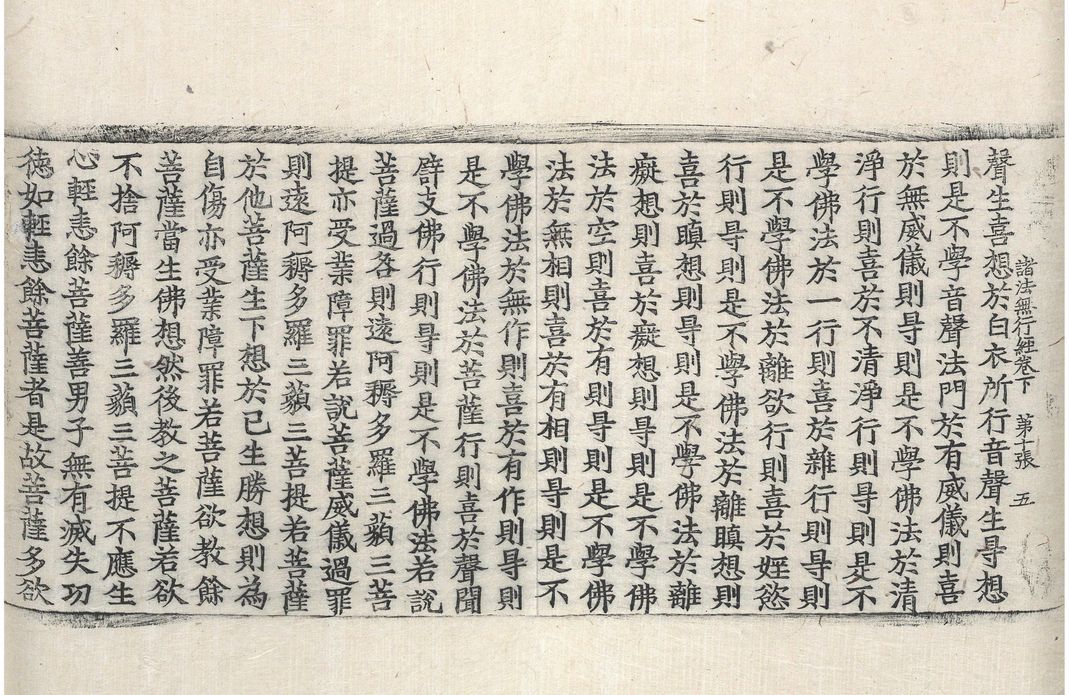 諸法無行經卷下 第十張 五
聲生喜想於白衣所行音聲生㝵想
則是不學音聲法門於有威儀則喜
於無威儀則㝵則是不學佛法於清
淨行則喜於不清淨行則㝵則是不
學佛法於一行則喜於雜行則㝵則
是不學佛法於離欲行則喜於婬慾
行則㝵則是不學佛法於離瞋想則
喜於瞋想則㝵則是不學佛法於離
癡想則喜於癡想則㝵則是不學佛
法於空則喜於有則㝵則是不學佛
法於無相則喜於有相則㝵則是不
學佛法於無作則喜於有作則㝵則
是不學佛法於菩薩行則喜於聲聞
辟支佛行則㝵則是不學佛法若說
菩薩過各則遠阿耨多羅三藐三菩
提亦受業障罪若說菩薩威儀過罪
則遠阿耨多羅三藐三菩提若菩薩
於他菩薩生下想於己生勝想則為
自傷亦受業障罪若菩薩欲教餘
菩薩當生佛想然後教之菩薩若欲
不捨阿耨多羅三藐三菩提不應生
心輕恚餘菩薩善男子無有滅失功
德如輕恚餘菩薩者是故菩薩多欲